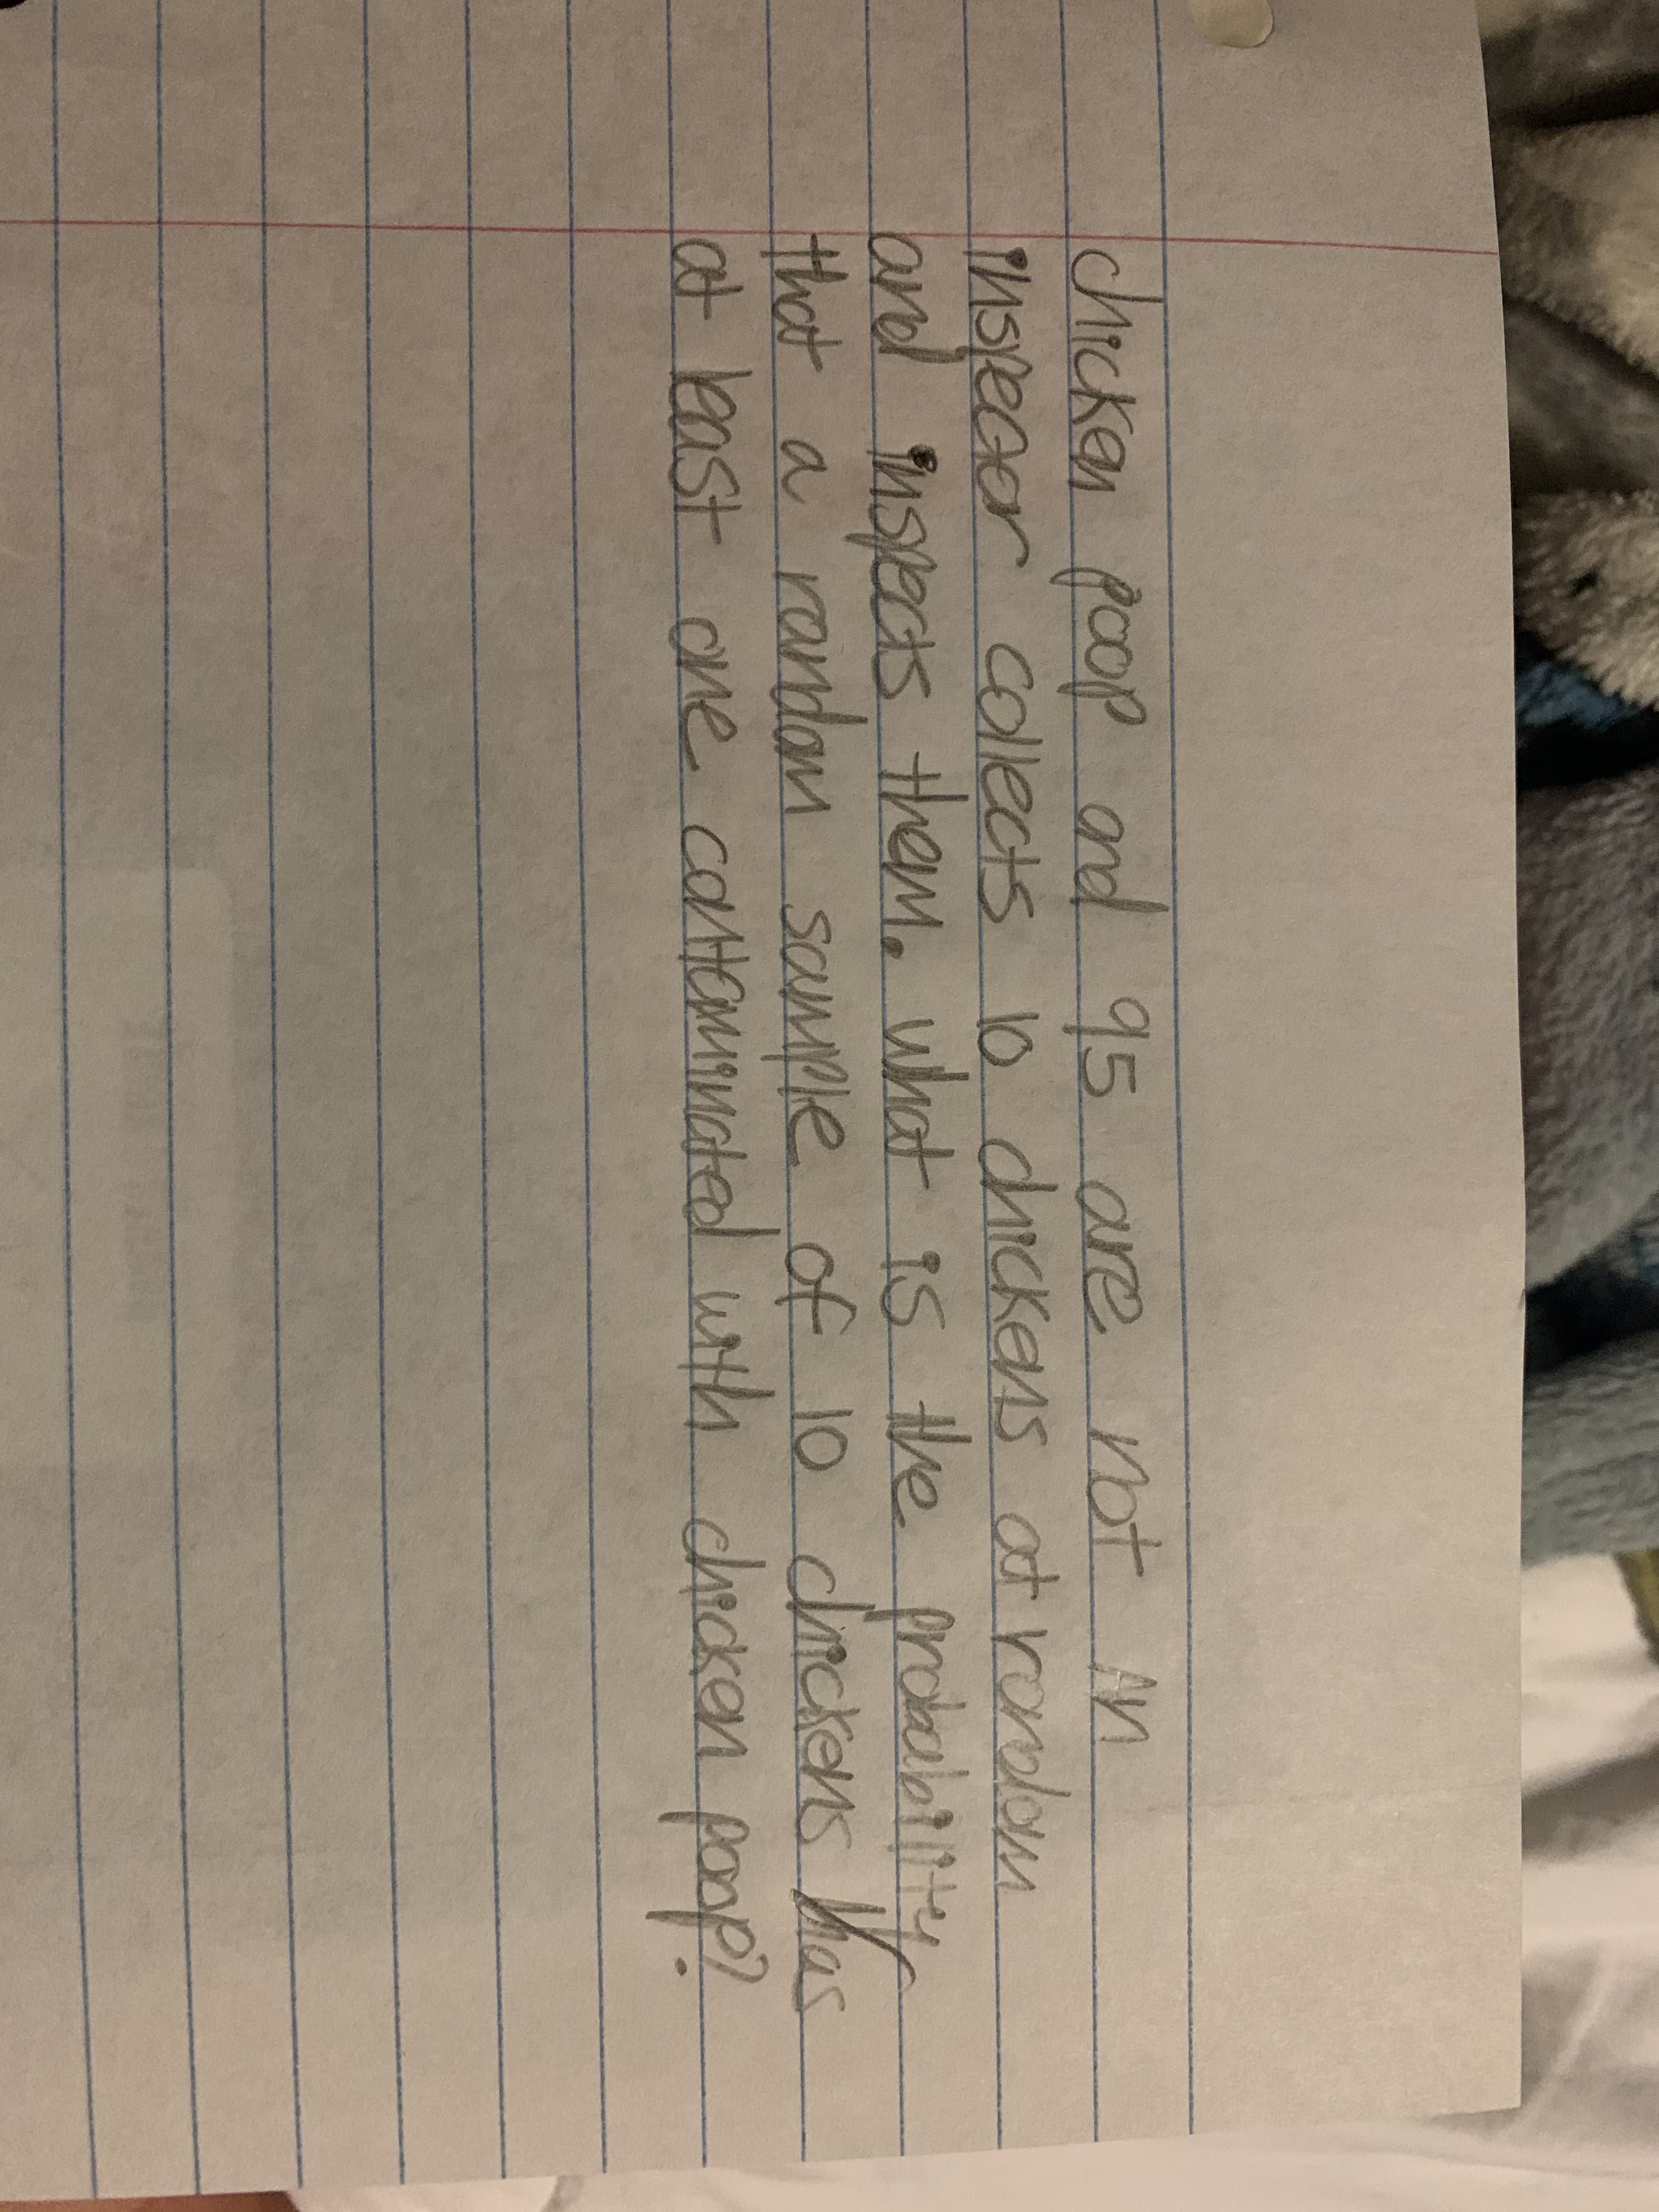 chicken poop and 95 are not An
inspector collects 10 chickens at random
and inspects them. what is the probability
that a random sample of 10 chickens has
at least one contaminated with chicken poop?